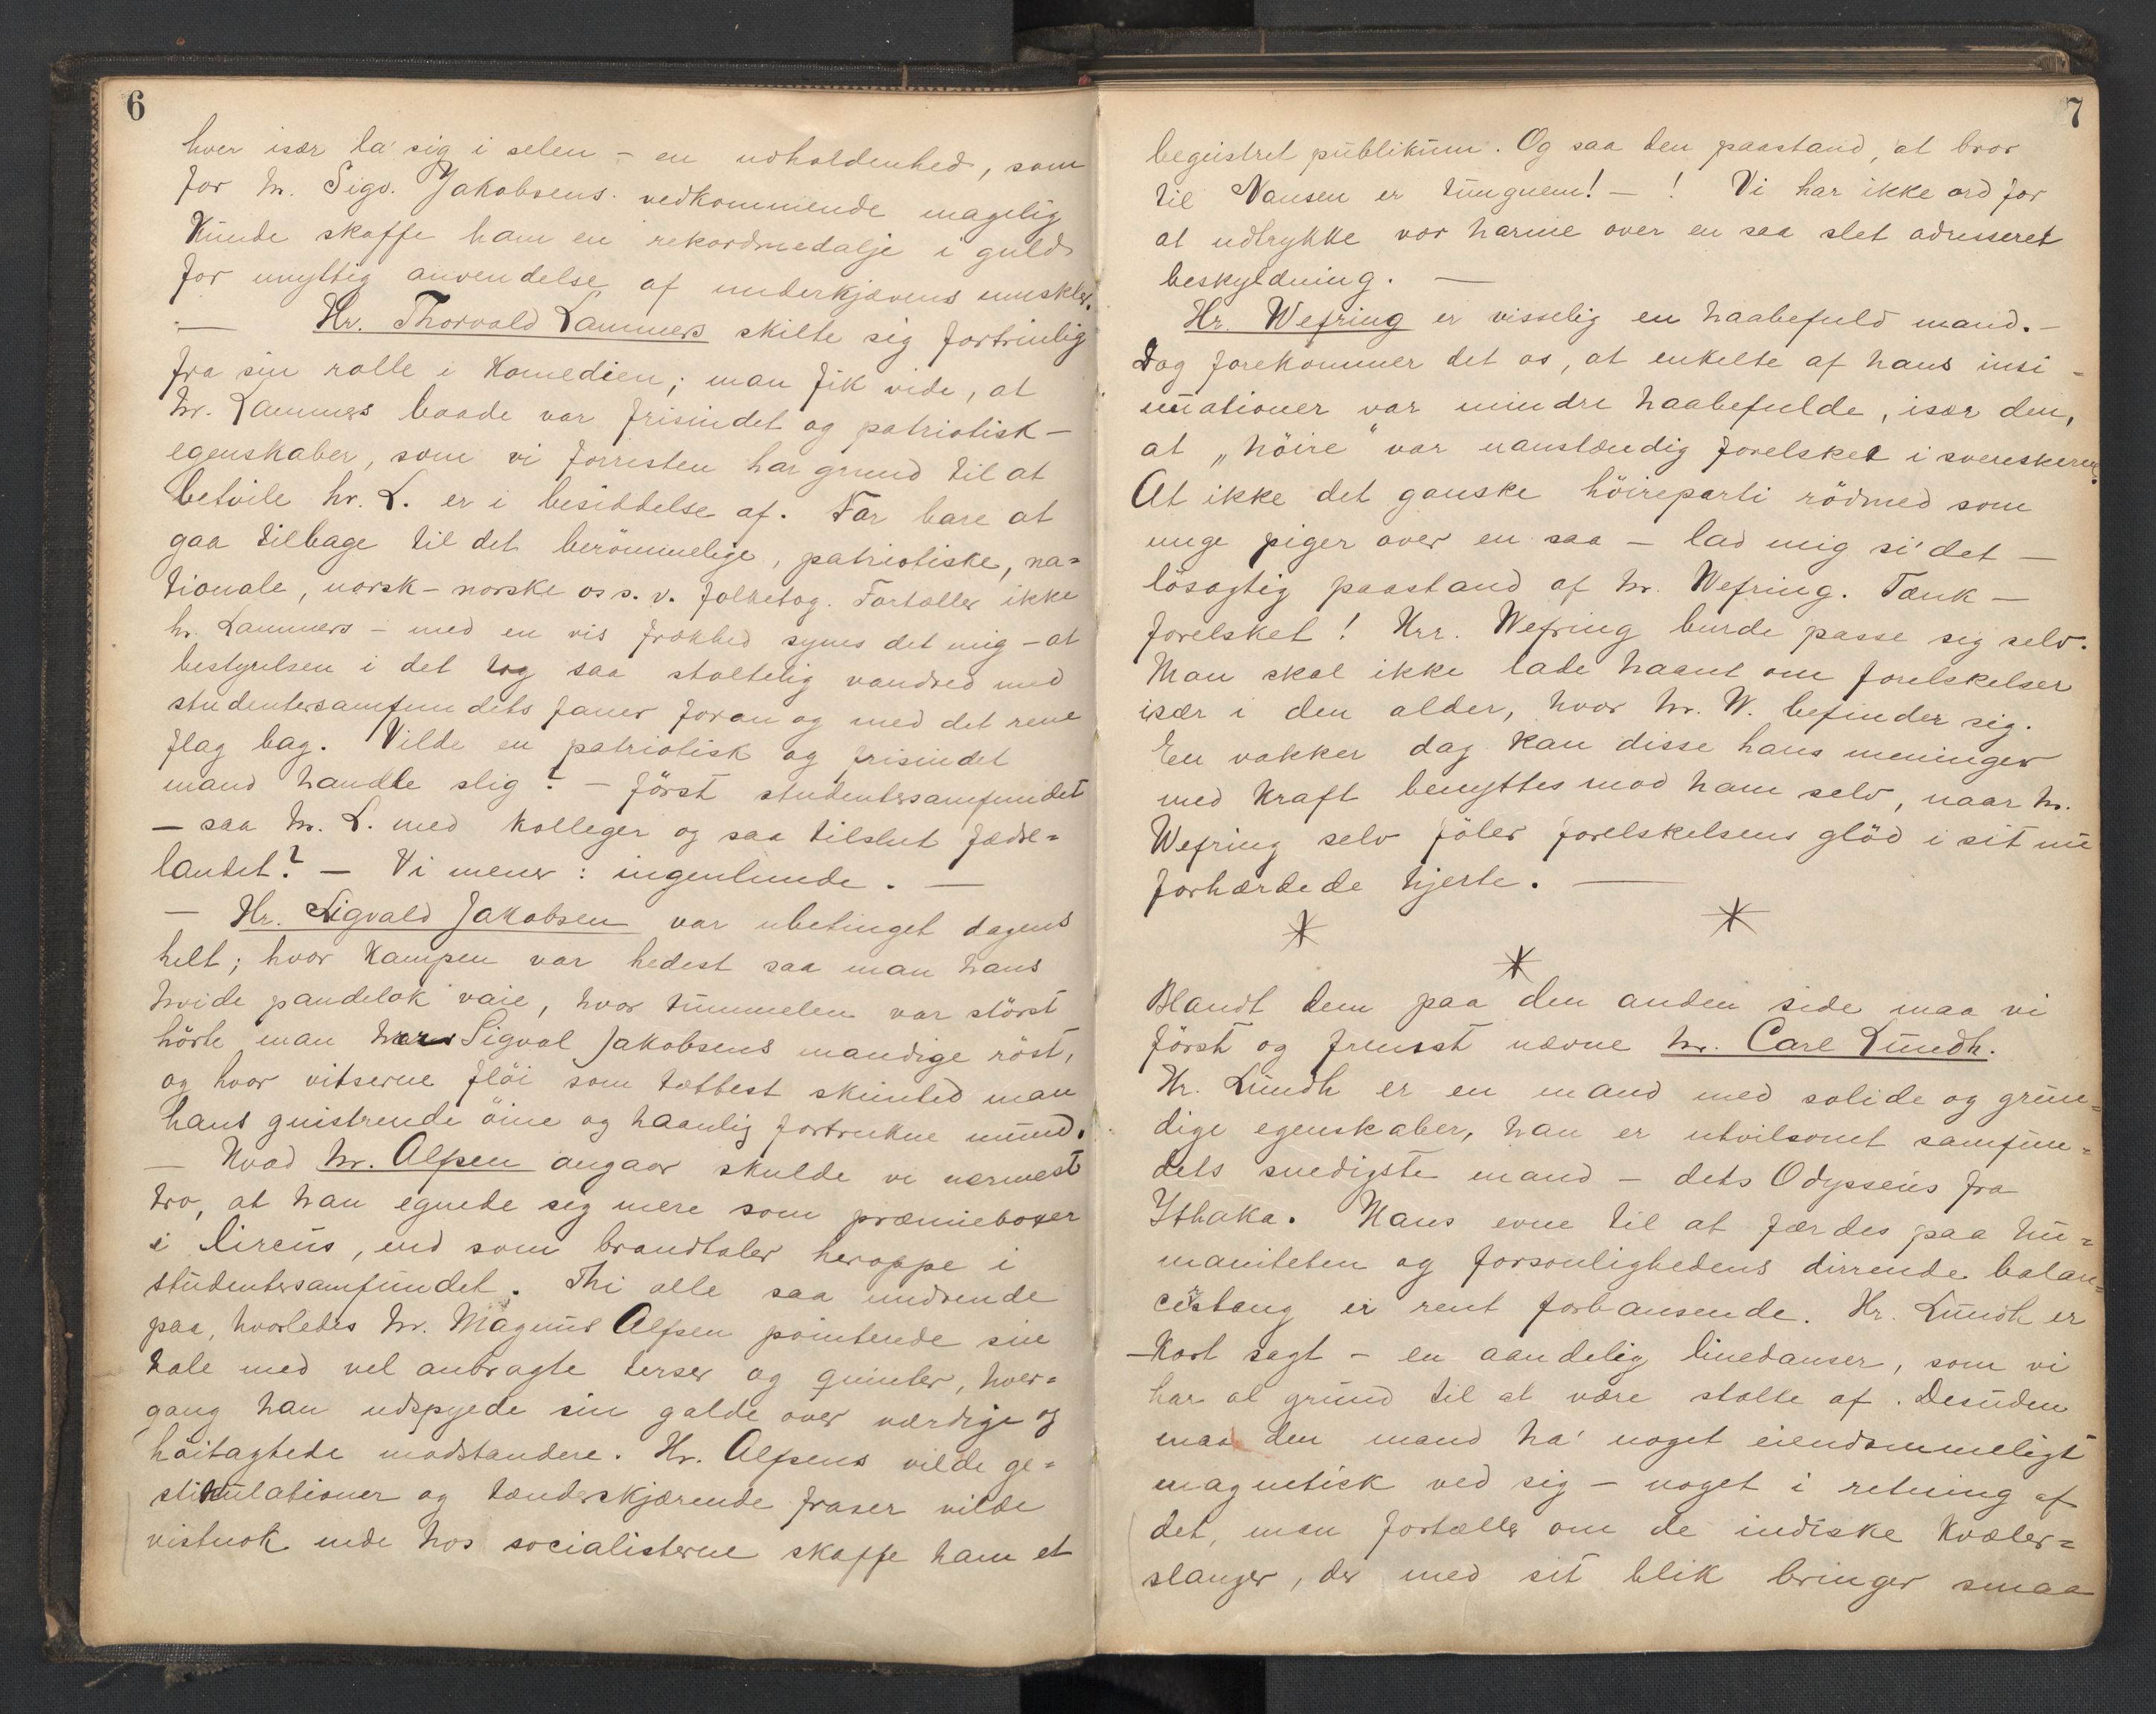 6
hver især la' sig i selen – en udholdenhed, som
for hr. Sigv. Jakobsens vedkommende magelig
kunde skaffe ham en rekordmedalje i guld
for unyttig anvendelse af underkjævens muskler.
— Hr. Thorvald Lammers skilte sig fortrinlig
fra sin rolle i komedien; man fik vide, at
hr. Lammers baade var frisindet og patriotisk –
egenskaber, som vi forresten har grund til at
betvile hr. L. er i besiddelse af. For bare at
gaa tilbage til det berömmelige, patriotiske, na=
tionale, norsk-norske o s. v. folketog. Fortæller ikke
hr. Lammers – med en vis frækhed synes det mig – at
bestyrelsen i det tog saa stoltelig vandred med
studentersamfundets faner foran og med det rene
flag bag. Vilde en patriotisk og frisindet
mand handle slig? – först studentersamfundet
– saa hr. L. med kolleger og saa tilslut fædre=
landet? – Vi mener: ingenlunde. —
— Hr. Sigvald Jakobsen var ubetinget dagens
helt; hvor kampen var hedest saa man hans
hvide pandelok vaie, hvor tummelen var störst
hörte man hans Sigval Jakobsens mandige röst,
og hvor vitserne flöi som tættest skimted man
hans gnistrende öine og haanlig fortrukne mund.
— Hvad hr. Alfsen angaar skulde vi nærmest
tro, at han egnede sig mere som præmiebokser
i Circus, end som brandtaler heroppe i
studentersamfundet. Thi alle saa undrende
paa, hvorledes hr. Magnus Alfsen pointerede sin
tale med vel anbragte terser og quinter, hver=
gang han udspyede sin galde over værdige og
höitagtede modstandere. Hr. Alfsens vilde ge=
stikulationer og tænderskjærende fraser vilde
vistnok nede hos socialisterne skaffe ham et
7
begeistret publikum. Og saa den paastand, at bror
til Nansen er tungnem! – ! Vi har ikke ord for
at udtrykke vor harme over en saa slet adresseret
beskyldning. —
Hr. Wefring er visselig en haabefuld mand. –
Dog forekommer det os, at enkelte af hans insi=
nuationer var mindre haabefulde, især den,
at „höire“ var uanstændig forelsket i svenskerne.
At ikke det ganske höireparti rödmed som
unge piger over en saa – lad mig si' det –
lösagtig paastand af hr. Wefring. Tænk –
forelsket! Hrr. Wefring burde passe sig selv.
Man skal ikke lade haant om forelskelser
især i den alder, hvor hr. W. befinder sig.
En vakker dag kan disse hans meninger
med kraft benyttes mod ham selv, naar hr.
Wefring selv föler forelskelsens glöd i sit nu
forhærdede hjerte. —
* * *
Blandt dem paa den anden side maa vi
först og fremst nævne hr. Carl Lundh.
Hr. Lundh er en mand med solide og grun=
dige egenskaber, han er utvilsomt samfun=
dets snedigste mand – dets Odysseus fra
Ithaka. Hans evne til at færdes paa hu=
maniteten og forsonlighedens dirrende balan=
cèstang er rent forbausende. Hr. Lundh er
– kort sagt – en aandelig linedanser, som vi
har al grund til at være stolte af. Desuden
maa den mand ha' noget eiendommeligt
magnetisk ved sig – noget i retning af
det, man fortæller om de indiske kvæler=
slanger, der med sit blik bringer smaa